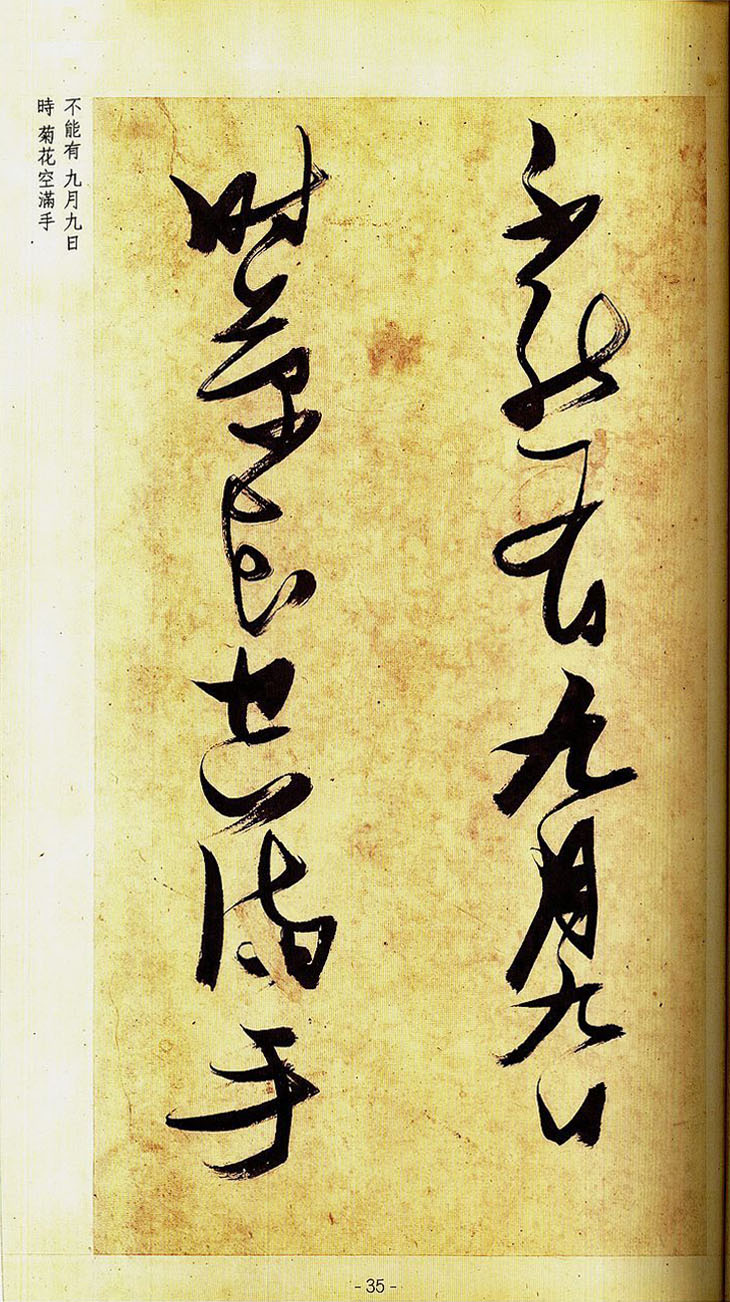 不能有九月九日
時菊花空滿手
不能有 九月九日
時 菊花空滿手
- 35 -